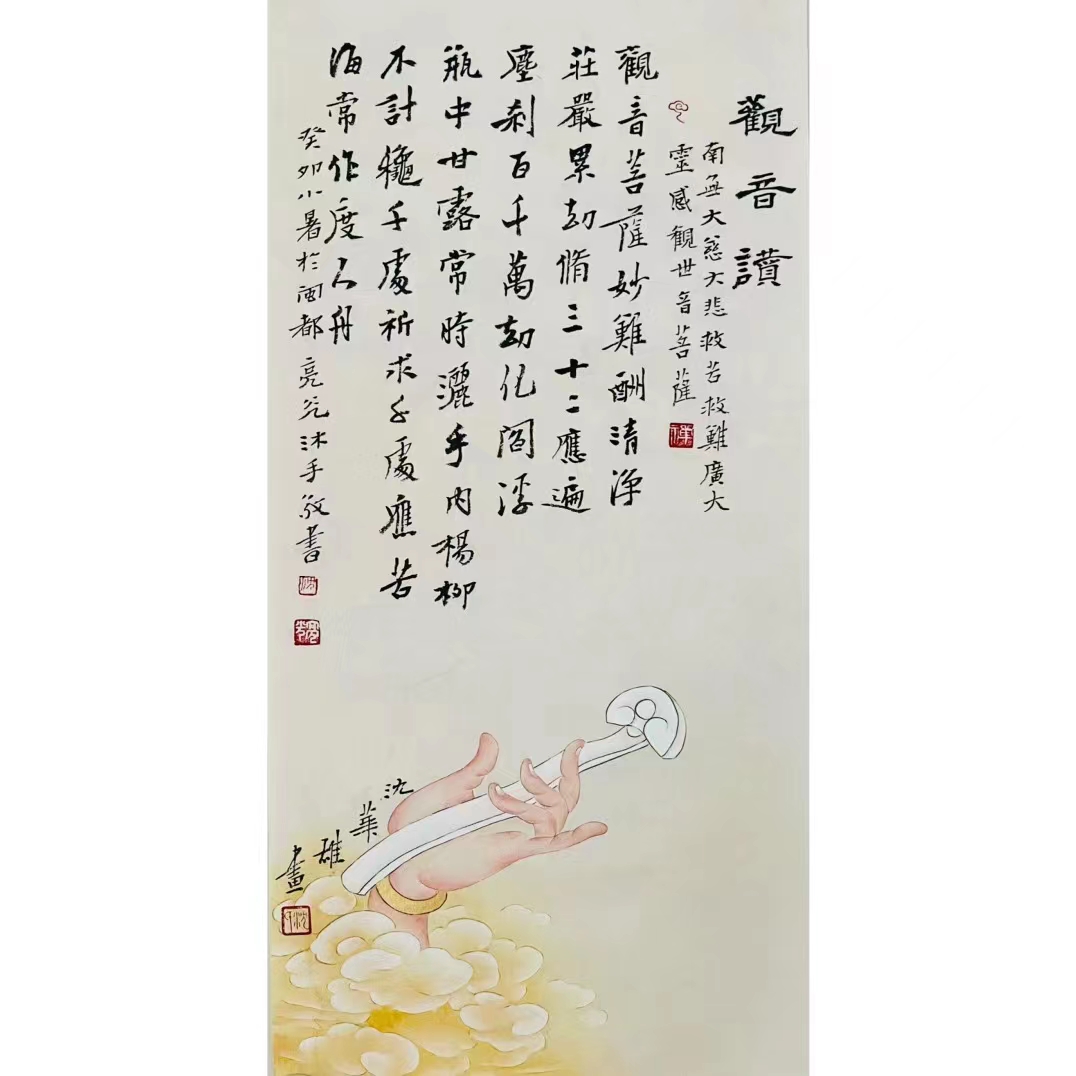 觀音讚
南無大慈大悲救苦救難廣大
靈感觀世音菩薩
觀音菩薩妙難酬清淨
莊嚴累劫脩三十二應遍
塵剎百千萬劫化閻浮
瓶中甘露常時灑手內楊柳
不計龝千處祈求千處應苦
海常作度人舟
癸卯小暑於閩都亮沐手敬書
沈華雄畫